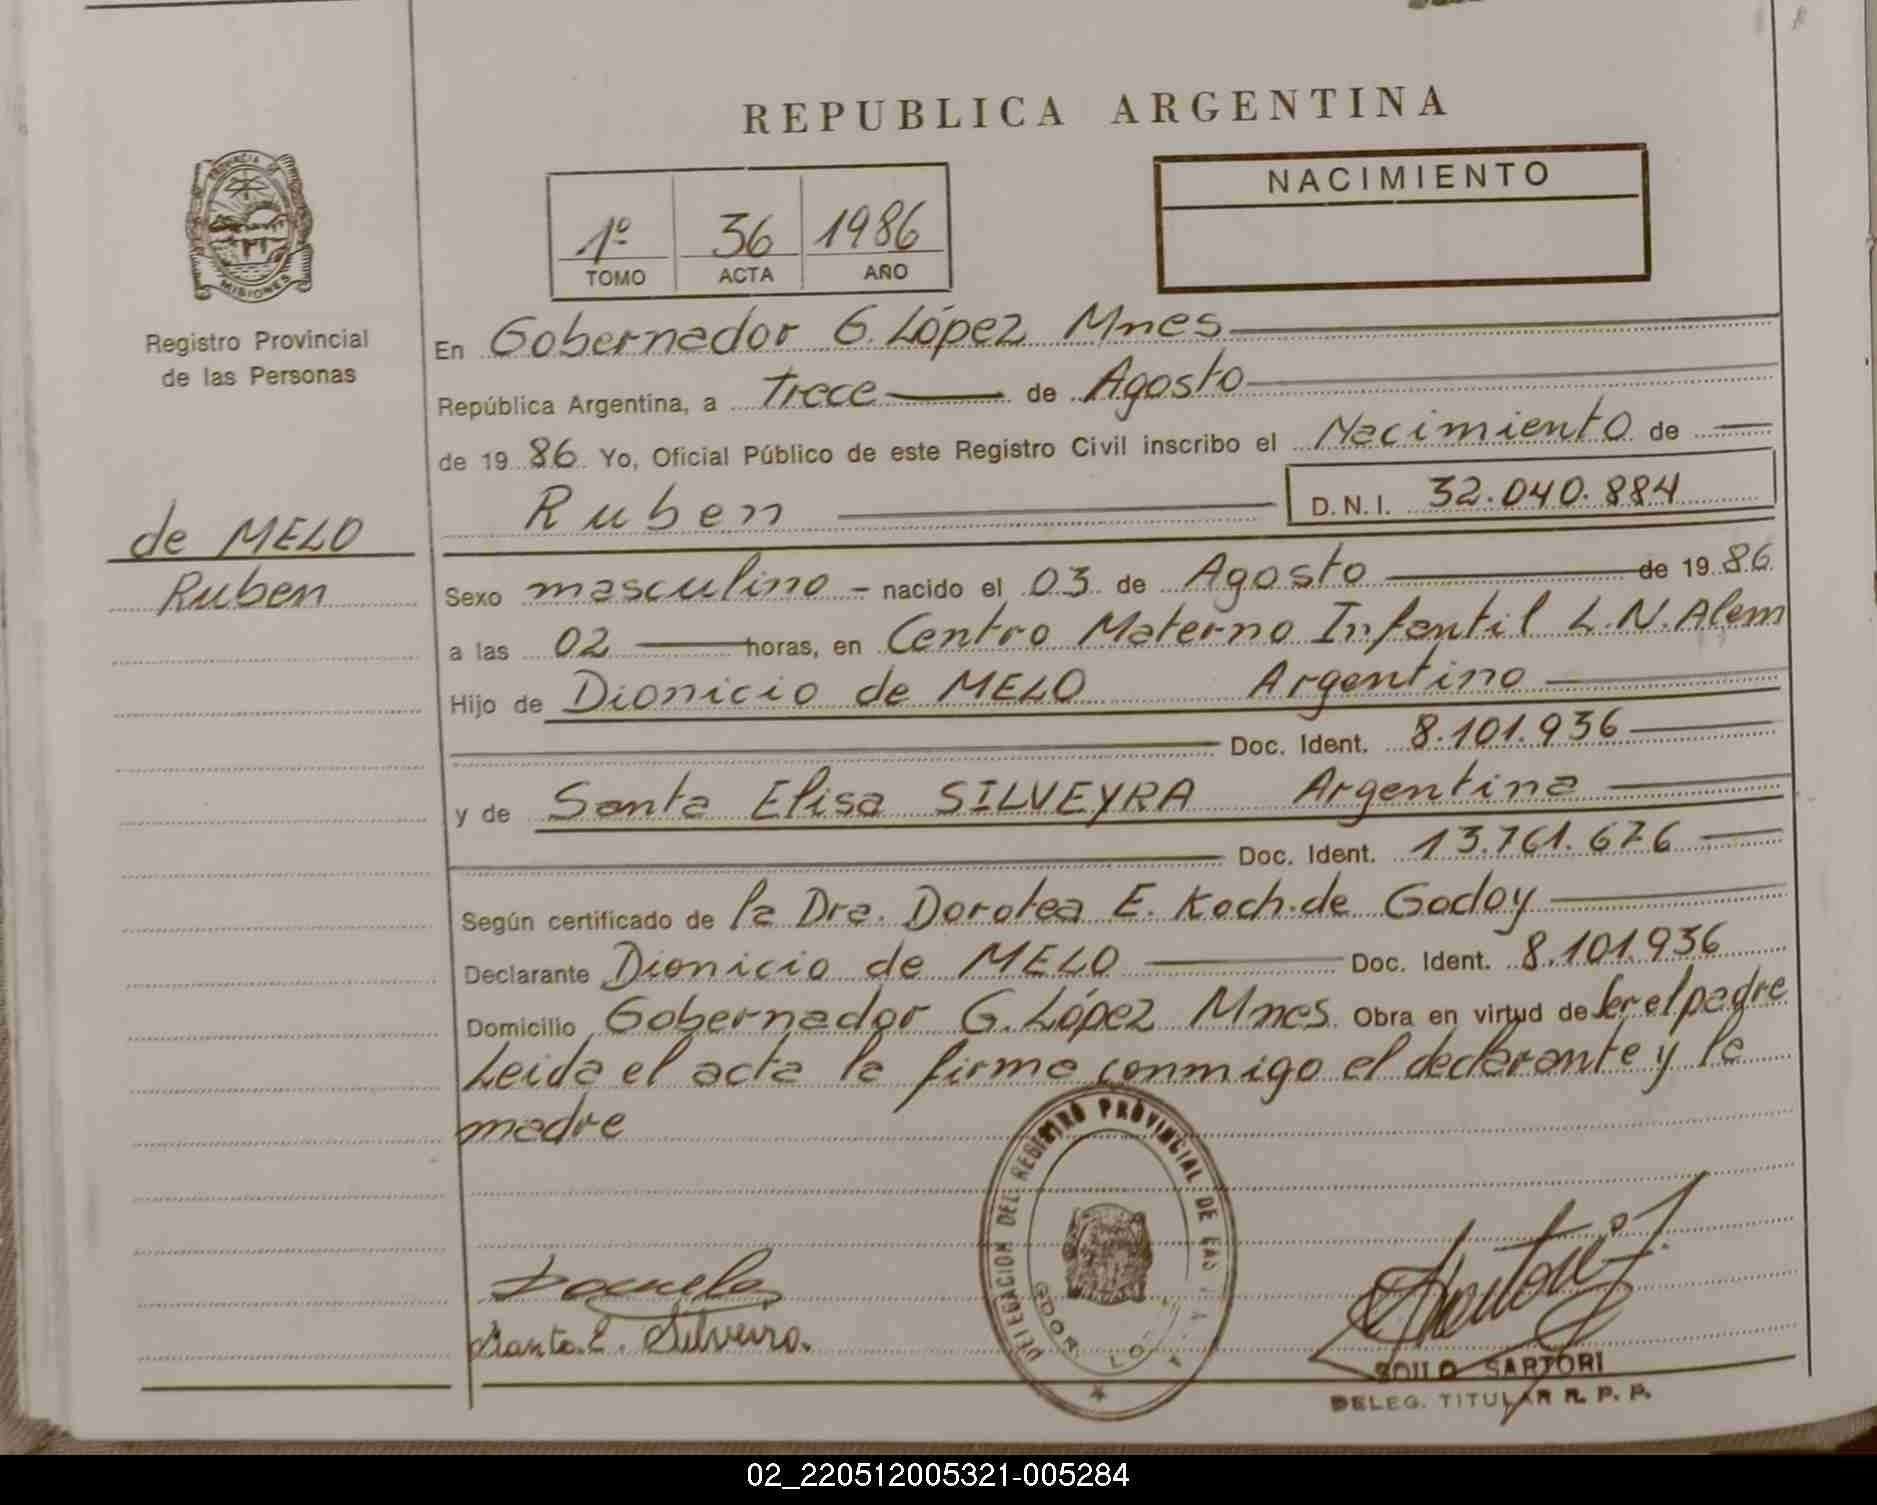 REPUBLICA ARGENTINA
PROVINCIA DE
MISIONES
Registro Provincial
de las Personas
1º 36 1986
TOMO ACTA AÑO
NACIMIENTO
En Gobernador G. López Mnes
República Argentina, a Trece de Agosto
de 19 86 Yo, Oficial Público de este Registro Civil inscribo el Nacimiento de
Ruben D.N.I. 32.040.884
de MELO
Ruben
Sexo masculino - nacido el 03 de Agosto de 19 86
a las 02 horas, en Centro Materno Infantil L.N.Alem
Hijo de Dionicio de MELO Argentino
Doc. Ident. 8.101.936
y de Santa Elisa SILVEYRA Argentina
Doc. Ident. 13.761.676
Según certificado de la Dra. Dorotea E. Koch.de Godoy
Declarante Dionicio de MELO Doc. Ident. 8.101.936
Domicilio Gobernador G. López Mnes Obra en virtud de Ser el padre
Leida el acta la firma conmigo el declarante y la
madre
DELEGACION DEL REGISTRO PROVINCIAL DE LAS
GDOR LO
Santa E. Silveira.
SOILO SARTORI
DELEG. TITULAR R. P. P.
02_220512005321-005284